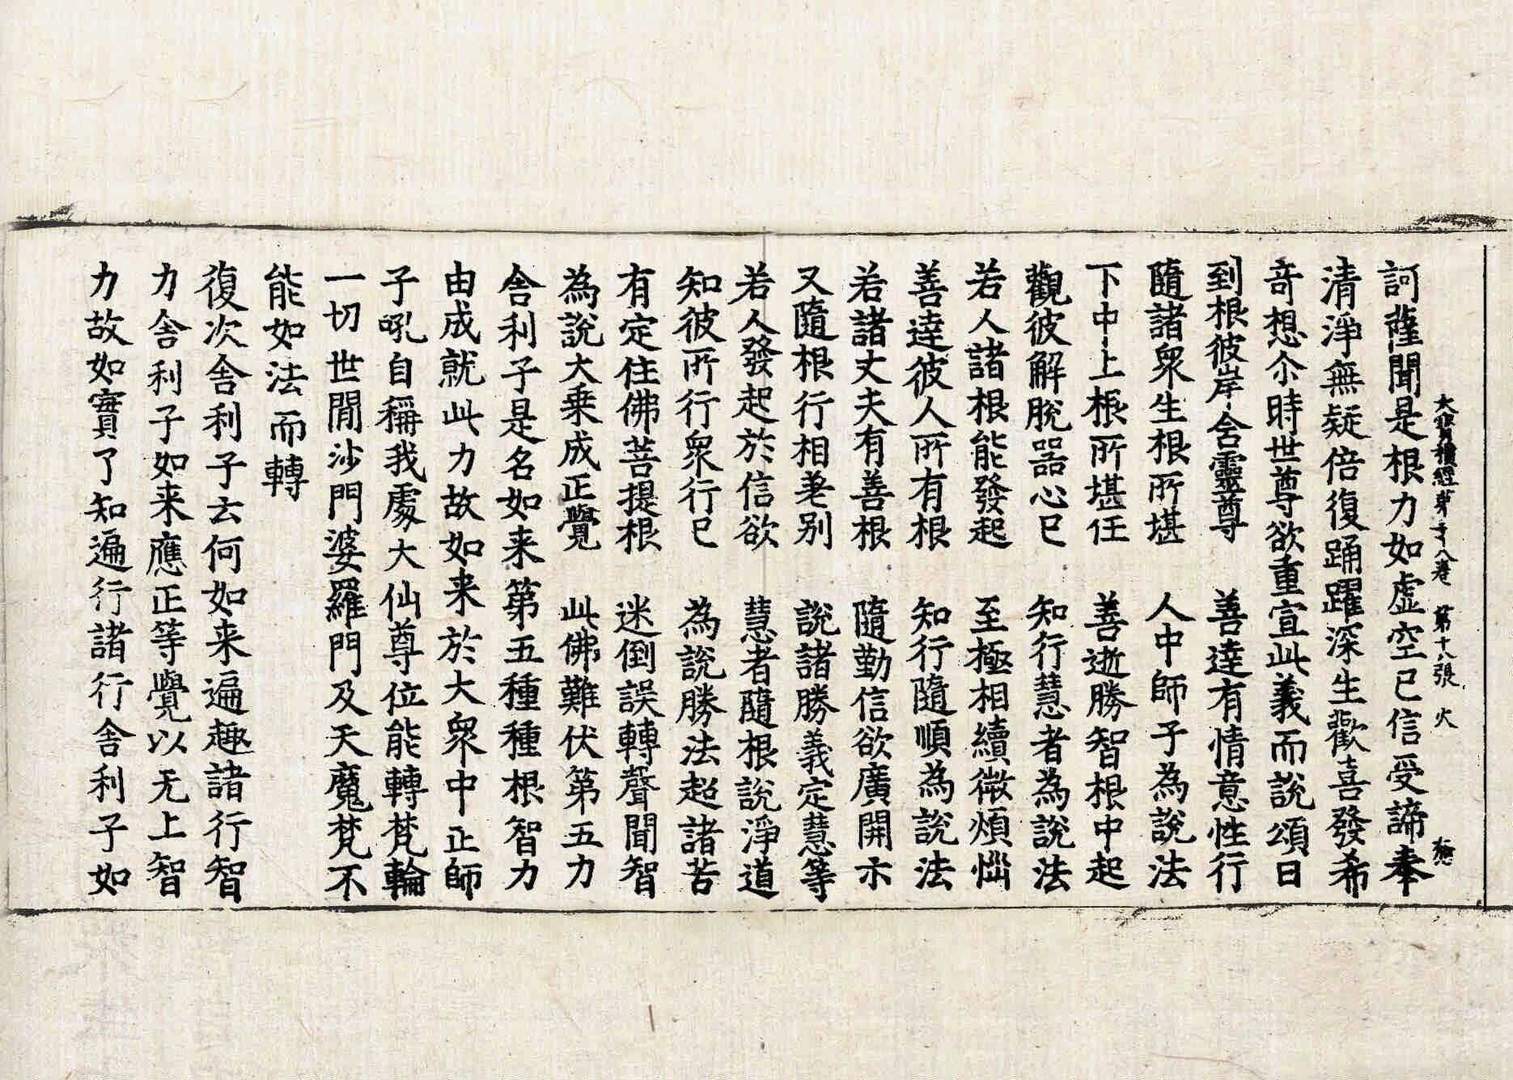 大寶積經第三十八卷 第十八張 火
訶薩聞是根力如虛空已信受諦奉
清淨無疑倍復踊躍深生歡喜發希
奇想尒時世尊欲重宣此義而說頌曰
到根彼岸舍靈尊 善達有情意性行
隨諸衆生根所堪 人中師子為說法
下中上根所堪任 善逝勝智根中起
觀彼解脫器心已 知行慧者為說法
若人諸根能發起 至極相續微煩惱
善達彼人所有根 知行隨順為說法
若諸丈夫有善根 隨勤信欲廣開示
又隨根行相差別 說諸勝義定慧等
若人發起於信欲 慧者隨根說淨道
知彼所行衆行已 為說勝法超諸苦
有定住佛菩提根 迷倒誤轉聲聞智
為說大乗成正覺 此佛難伏第五力
舍利子是名如来第五種種根智力
由成就此力故如来於大衆中正師
子吼自稱我處大仙尊位能轉梵輪
一切世間沙門婆羅門及天魔梵不
能如法而轉
復次舍利子云何如来遍趣諸行智
力舍利子如来應正等覺以无上智
力故如實了知遍行諸行舍利子如